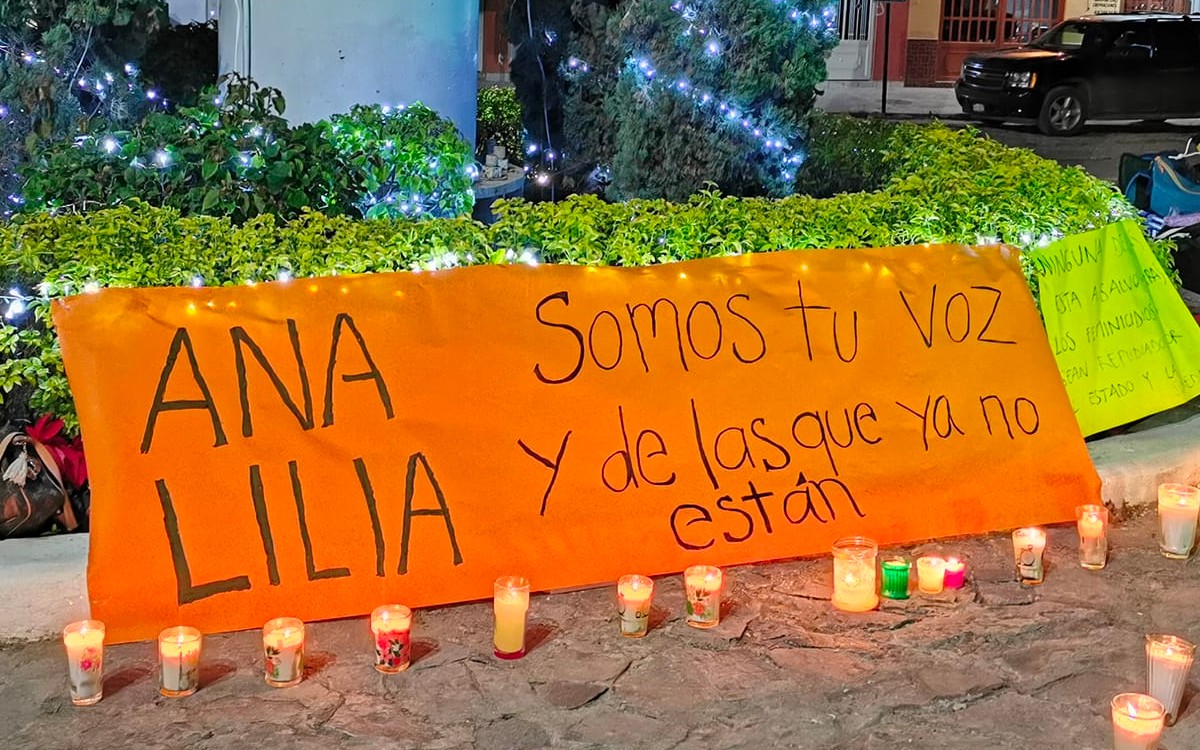 ANA
LILIA
Somos tu voz
y de las que ya no
están
NINGUNA
ESTA A SALVO
LOS FEMINICIDIOS
SEAN
ESTADO Y LA